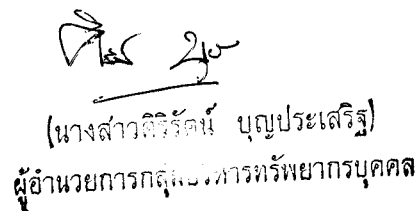 (นางสาวศิริรัตน์ บุญประเสริฐ)
ผู้อำนวยการกลุ่มบริหารทรัพยากรบุคคล